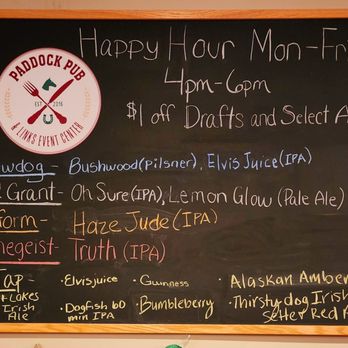 PADDOCK PUB
EST 2016
& LINKS EVENT CENTER
Happy Hour Mon-Fr
4pm-6pm
$1 off Drafts and Select A
wdog- Bushwood(Pilsner), Elvis Juice(IPA)
Grant- Oh Sure(IPA), Lemon Glow (Pale Ale)
form- Haze Jude(IPA)
negeist- Truth (IPA)
Tap
Lakes
Irish
Ale
·Elvisjuice
·Dogfish 60
min IPA
·Guinness
·Bumbleberry
·Alaskan Amber
·Thirstydog Irish
Setter Red A